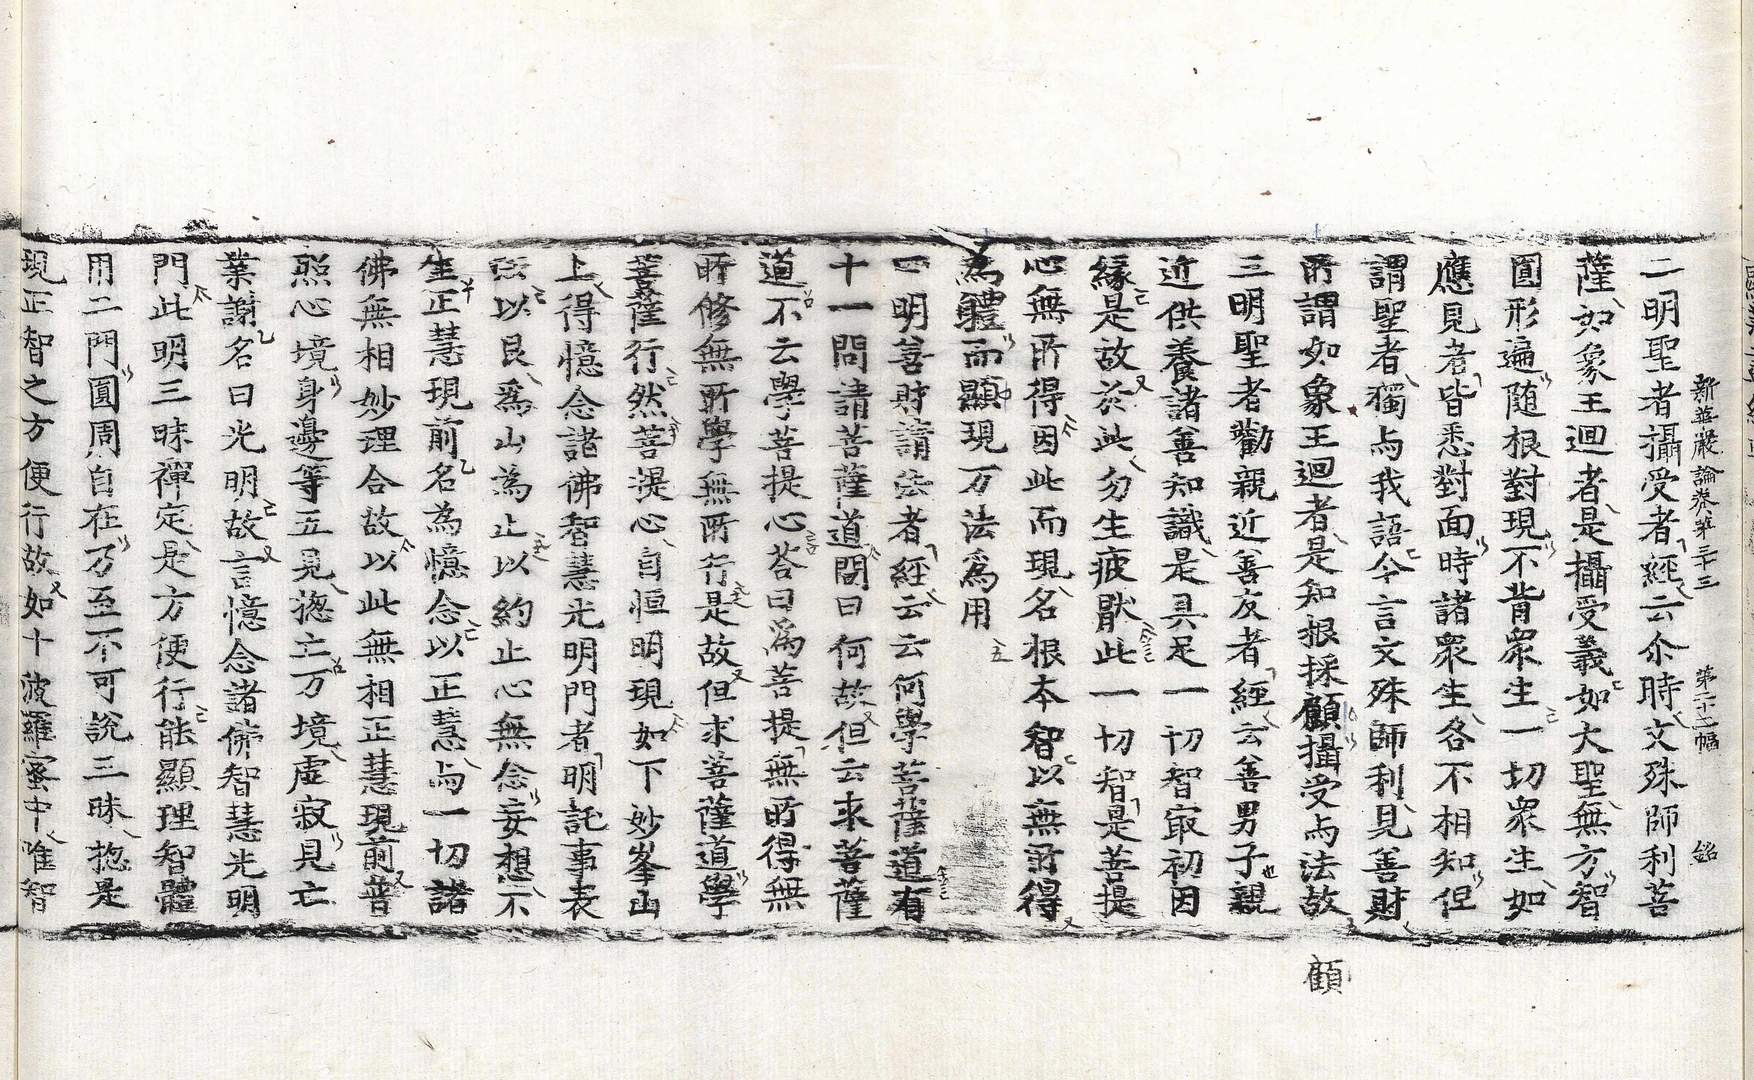 新華嚴論卷第三十三　第二十二幅　銘
二明聖者攝受者經云尒時文殊師利菩
薩如象王迴者是攝受義如大聖無方智
圓形遍随根對現不背衆生一切衆生如
應見者皆悉對面時諸衆生各不相知但
謂聖者獨与我語今言文殊師利見善財
所謂如象王迴者是知根採顧攝受与法故
顧
三明聖者勸親近善友者經云善男子親
近供養諸善知識是具足一切智㝡初因
緣是故於此勿生疲猒此一切智是菩提
心無所得因此而現名根本智以無所得
為軆而顯現万法爲用
四明善財請法者經云云何學菩薩道有
十一問請菩薩道問曰何故但云求菩薩
道不云學菩提心荅曰爲菩提無所得無
所修無所學無所行是故但求菩薩道學
菩薩行然菩提心自恒明現如下妙峯山
上得憶念諸佛智慧光明門者明託事表
法以艮爲山為止以約止心無念妄想不
生正慧現前名為憶念以正慧与一切諸
佛無相妙理合故以此無相正慧現前普
照心境身邊等五見揔亡万境虛寂見亡
業謝名曰光明故言憶念諸佛智慧光明
門此明三昧禪定是方便行能顯理智體
用二門圓周自在乃至不可說三昧揔是
現正智之方便行故如十波羅蜜中唯智